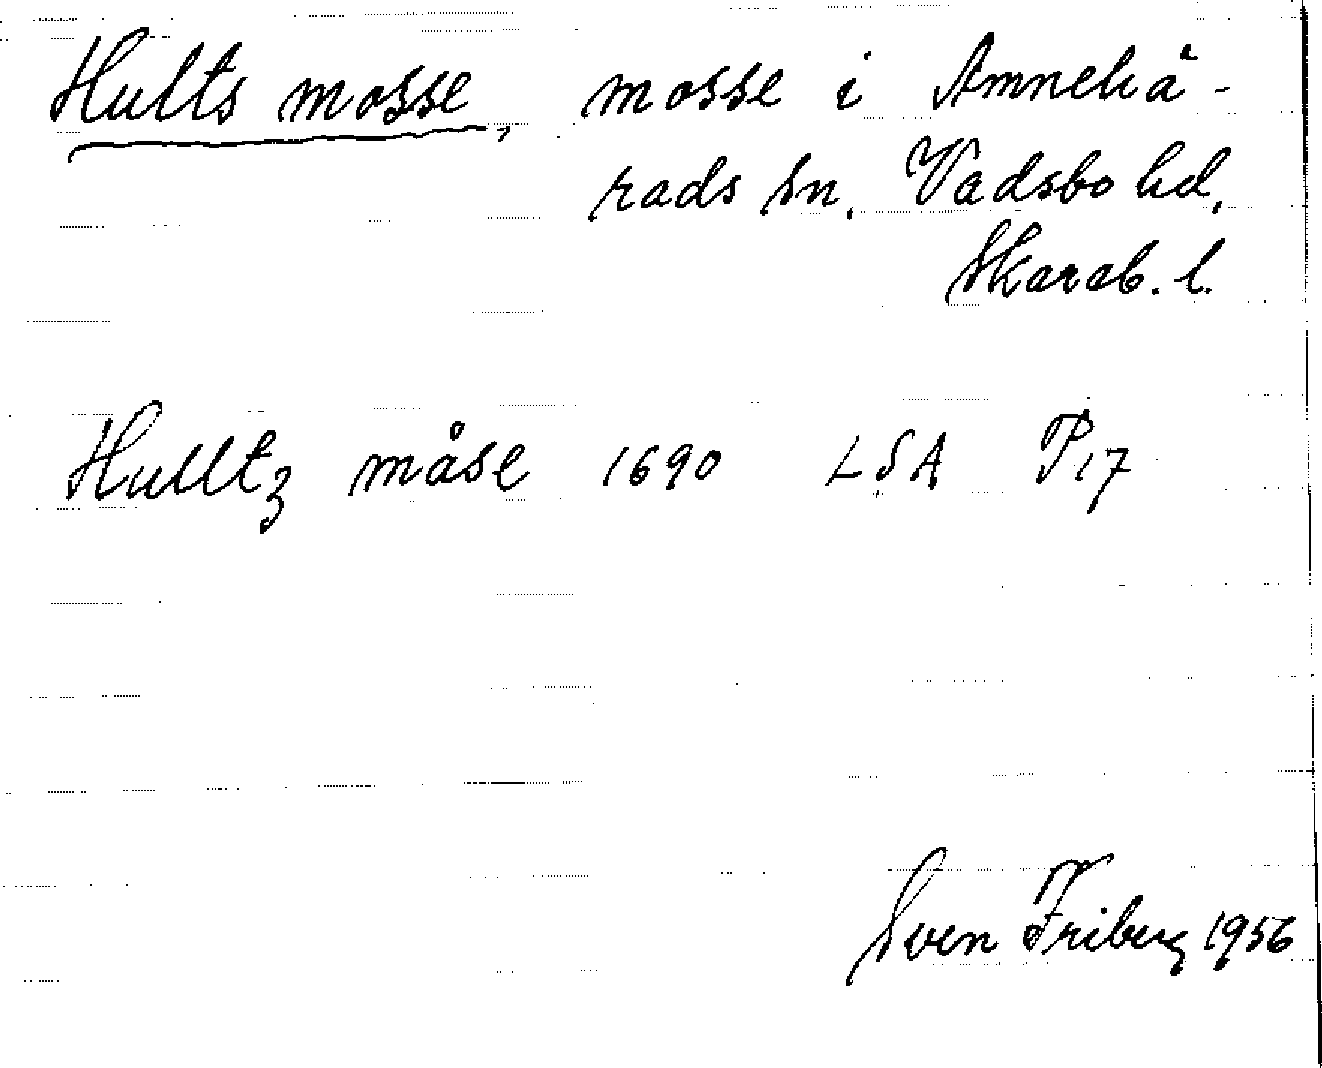 Hults mosse, mosse i Amnehä-
rads sn. Vadsbo hd,
Skarab. l.
Hulltz måse 1690 LSA P17
Sven Friberg 1956